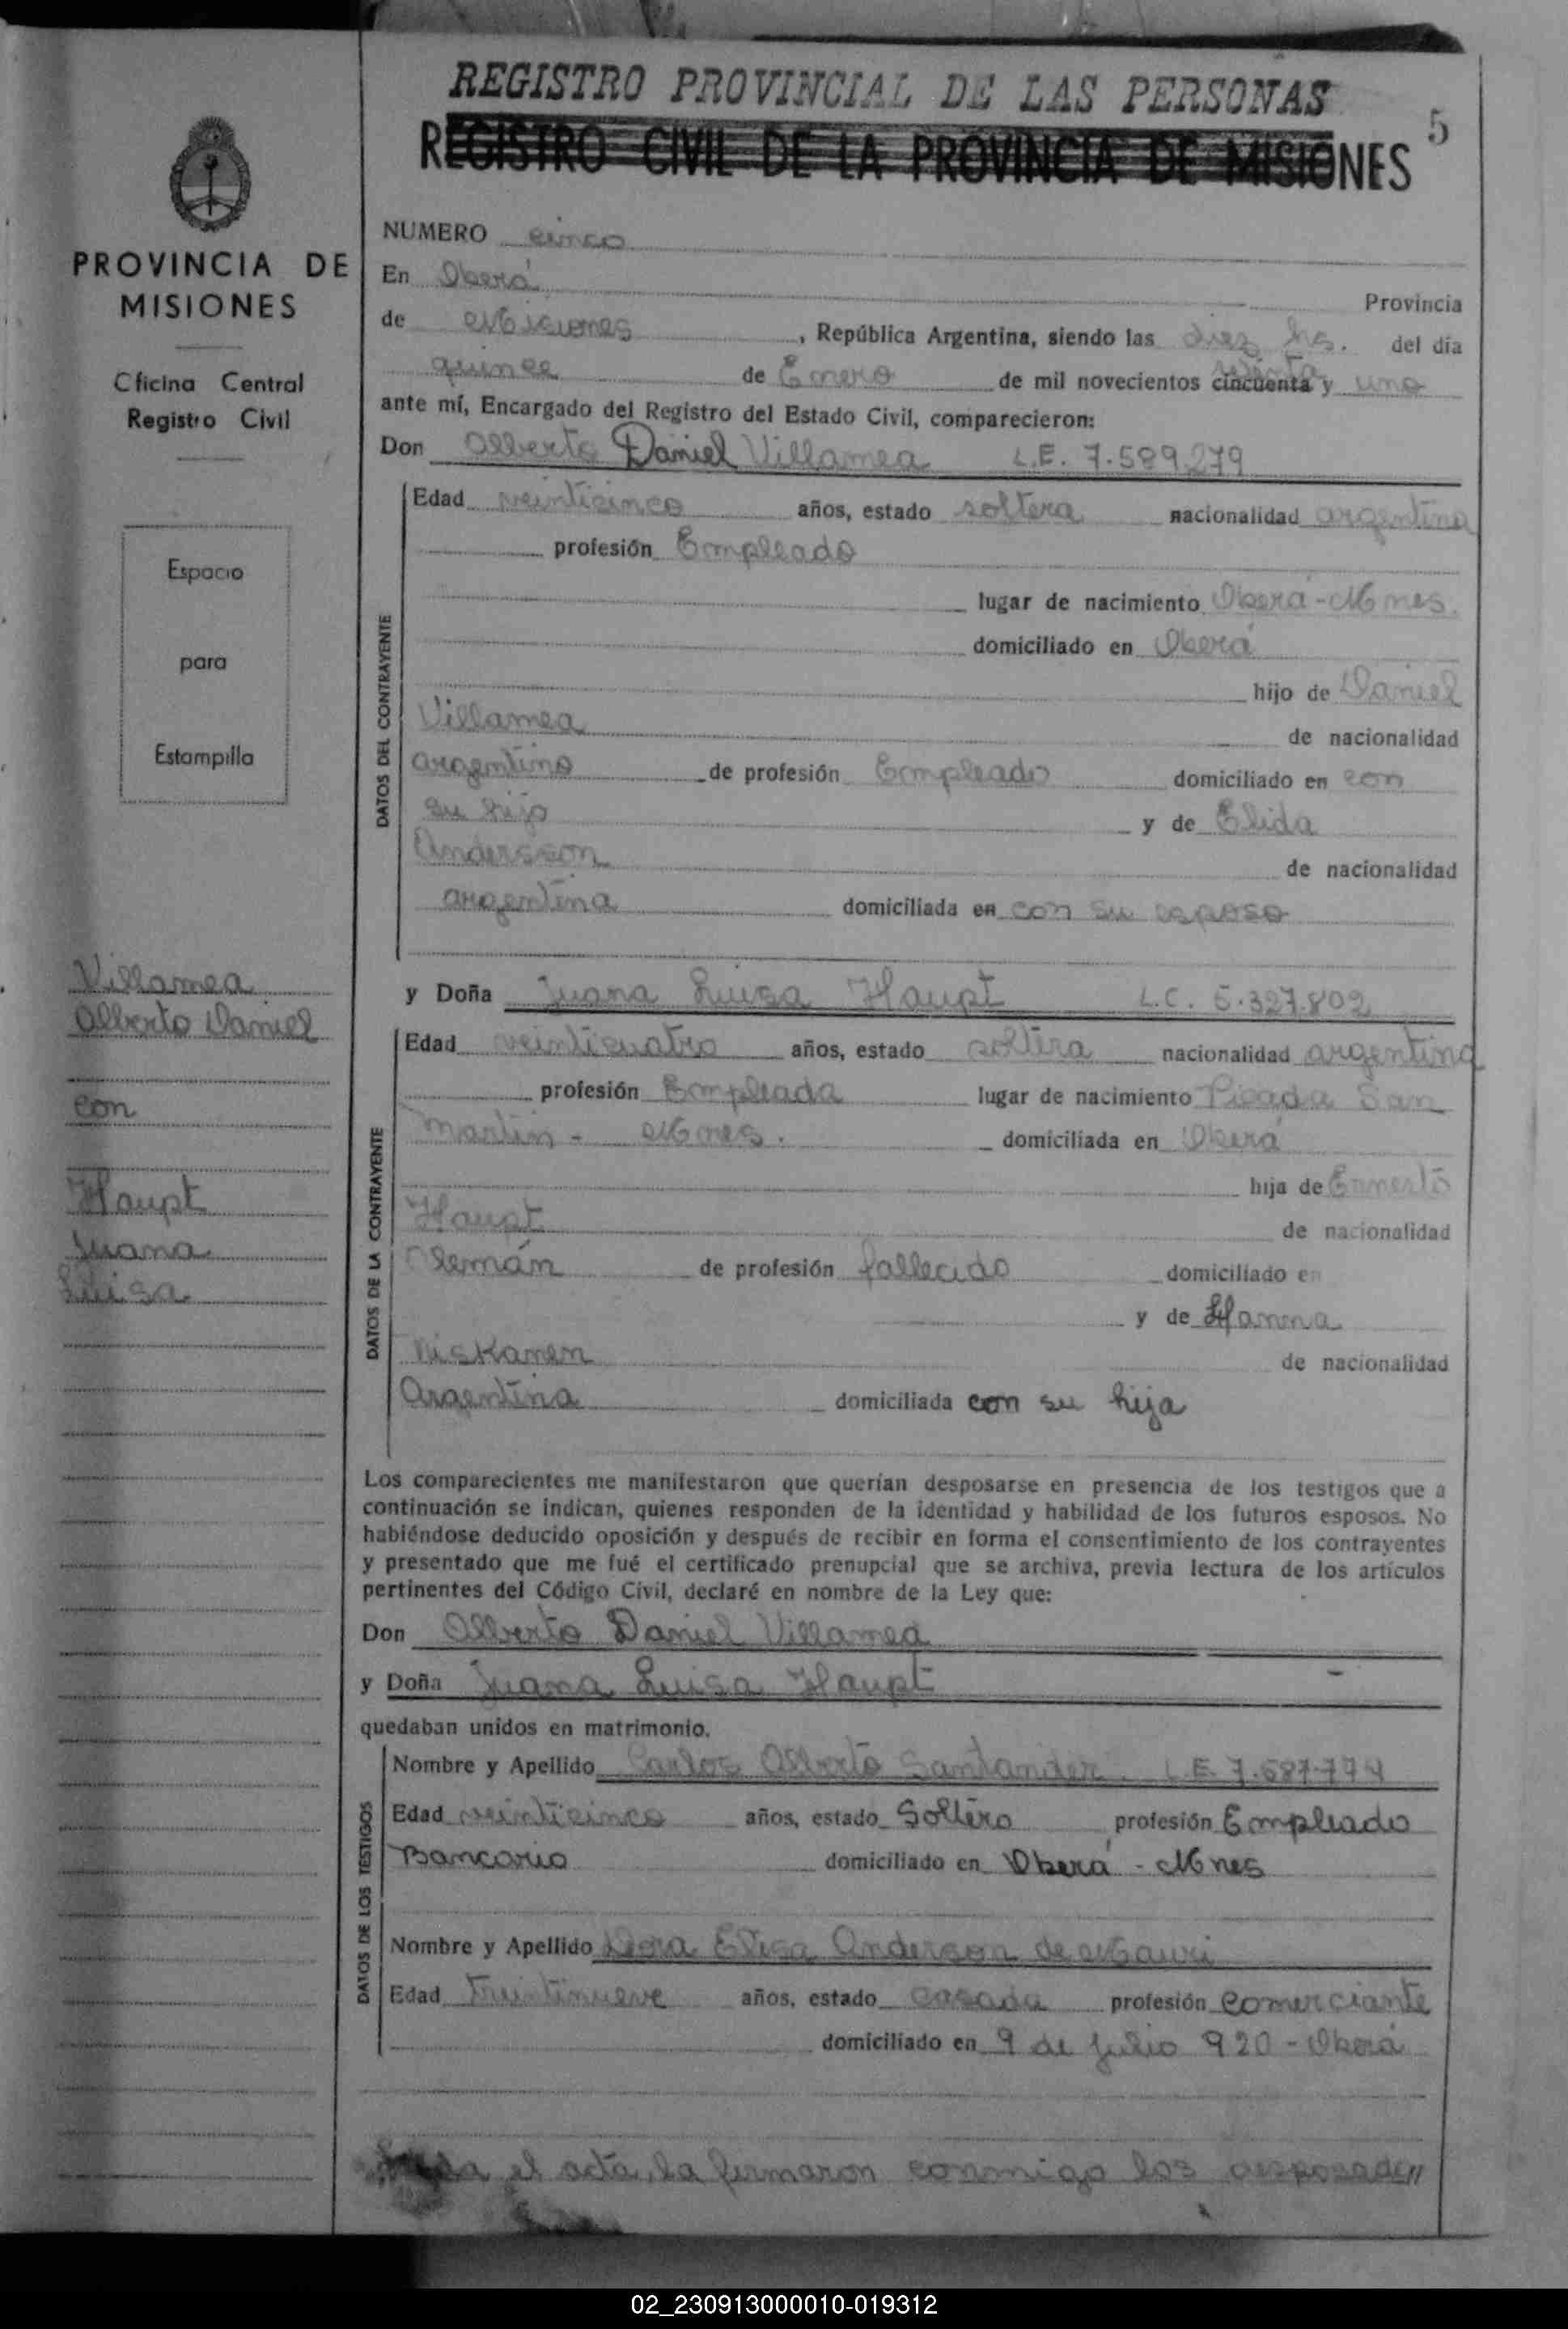 REGISTRO PROVINCIAL DE LAS PERSONAS
REGISTRO CIVIL DE LA PROVINCIA DE MISIONES
5
PROVINCIA DE
MISIONES
Oficina Central
Registro Civil
Espacio
para
Estampilla
Villamea
Alberto Daniel
con
Haupt
Juana
Luisa
NUMERO cinco
En Oberá Provincia
de Misiones, República Argentina, siendo las diez hs. del día
quince de Enero de mil novecientos cincuenta y uno
ante mí, Encargado del Registro del Estado Civil, comparecieron:
Don Alberto Daniel Villamea L.E. 7.589.279
DATOS DEL CONTRAYENTE
Edad veinticinco años, estado soltera nacionalidad argentina
profesión Empleado
lugar de nacimiento Oberá - Mnes.
domiciliado en Oberá
hijo de Daniel
Villamea de nacionalidad
argentino de profesión Empleado domiciliado en con
su hijo y de Elida
Andersson de nacionalidad
argentina domiciliada en con su esposo
y Doña Juana Luisa Haupt L.C. 5.327.802
DATOS DE LA CONTRAYENTE
Edad veinticuatro años, estado soltera nacionalidad argentina
profesión Empleada lugar de nacimiento Picada San
Martín - Mnes. domiciliada en Oberá
hija de Ernesto
Haupt de nacionalidad
Alemán de profesión fallecido domiciliado en
y de Hanna
Niskanen de nacionalidad
Argentina domiciliada con su hija
Los comparecientes me manifestaron que querían desposarse en presencia de los testigos que a
continuación se indican, quienes responden de la identidad y habilidad de los futuros esposos. No
habiéndose deducido oposición y después de recibir en forma el consentimiento de los contrayentes
y presentado que me fué el certificado prenupcial que se archiva, previa lectura de los artículos
pertinentes del Código Civil, declaré en nombre de la Ley que:
Don Alberto Daniel Villamea
y Doña Juana Luisa Haupt
quedaban unidos en matrimonio.
DATOS DE LOS TESTIGOS
Nombre y Apellido Carlos Alberto Santander. L.E. 7.687.774
Edad veinticinco años, estado Soltero profesión Empleado
Bancario domiciliado en Oberá - Mnes
Nombre y Apellido Dora Elisa Anderson de Mauri
Edad Treintinueve años, estado casada profesión comerciante
domiciliado en 9 de Julio 920 - Oberá
el acta, la firmaron conmigo los desposados
02_230913000010-019312